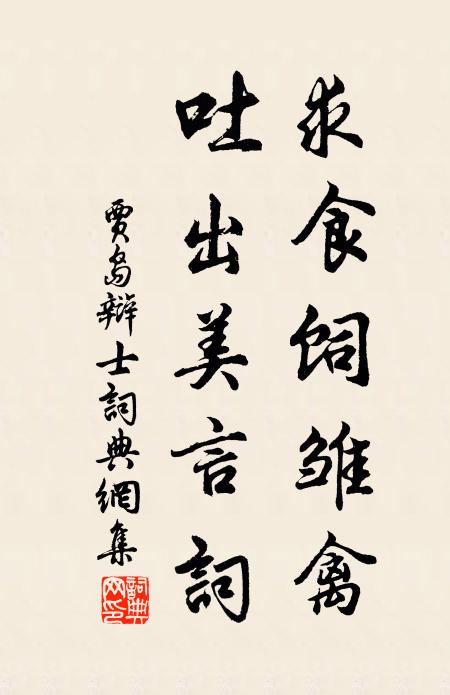 求食飼雛禽
吐出美言詞
賈島辯士詞典網集
詞典網印